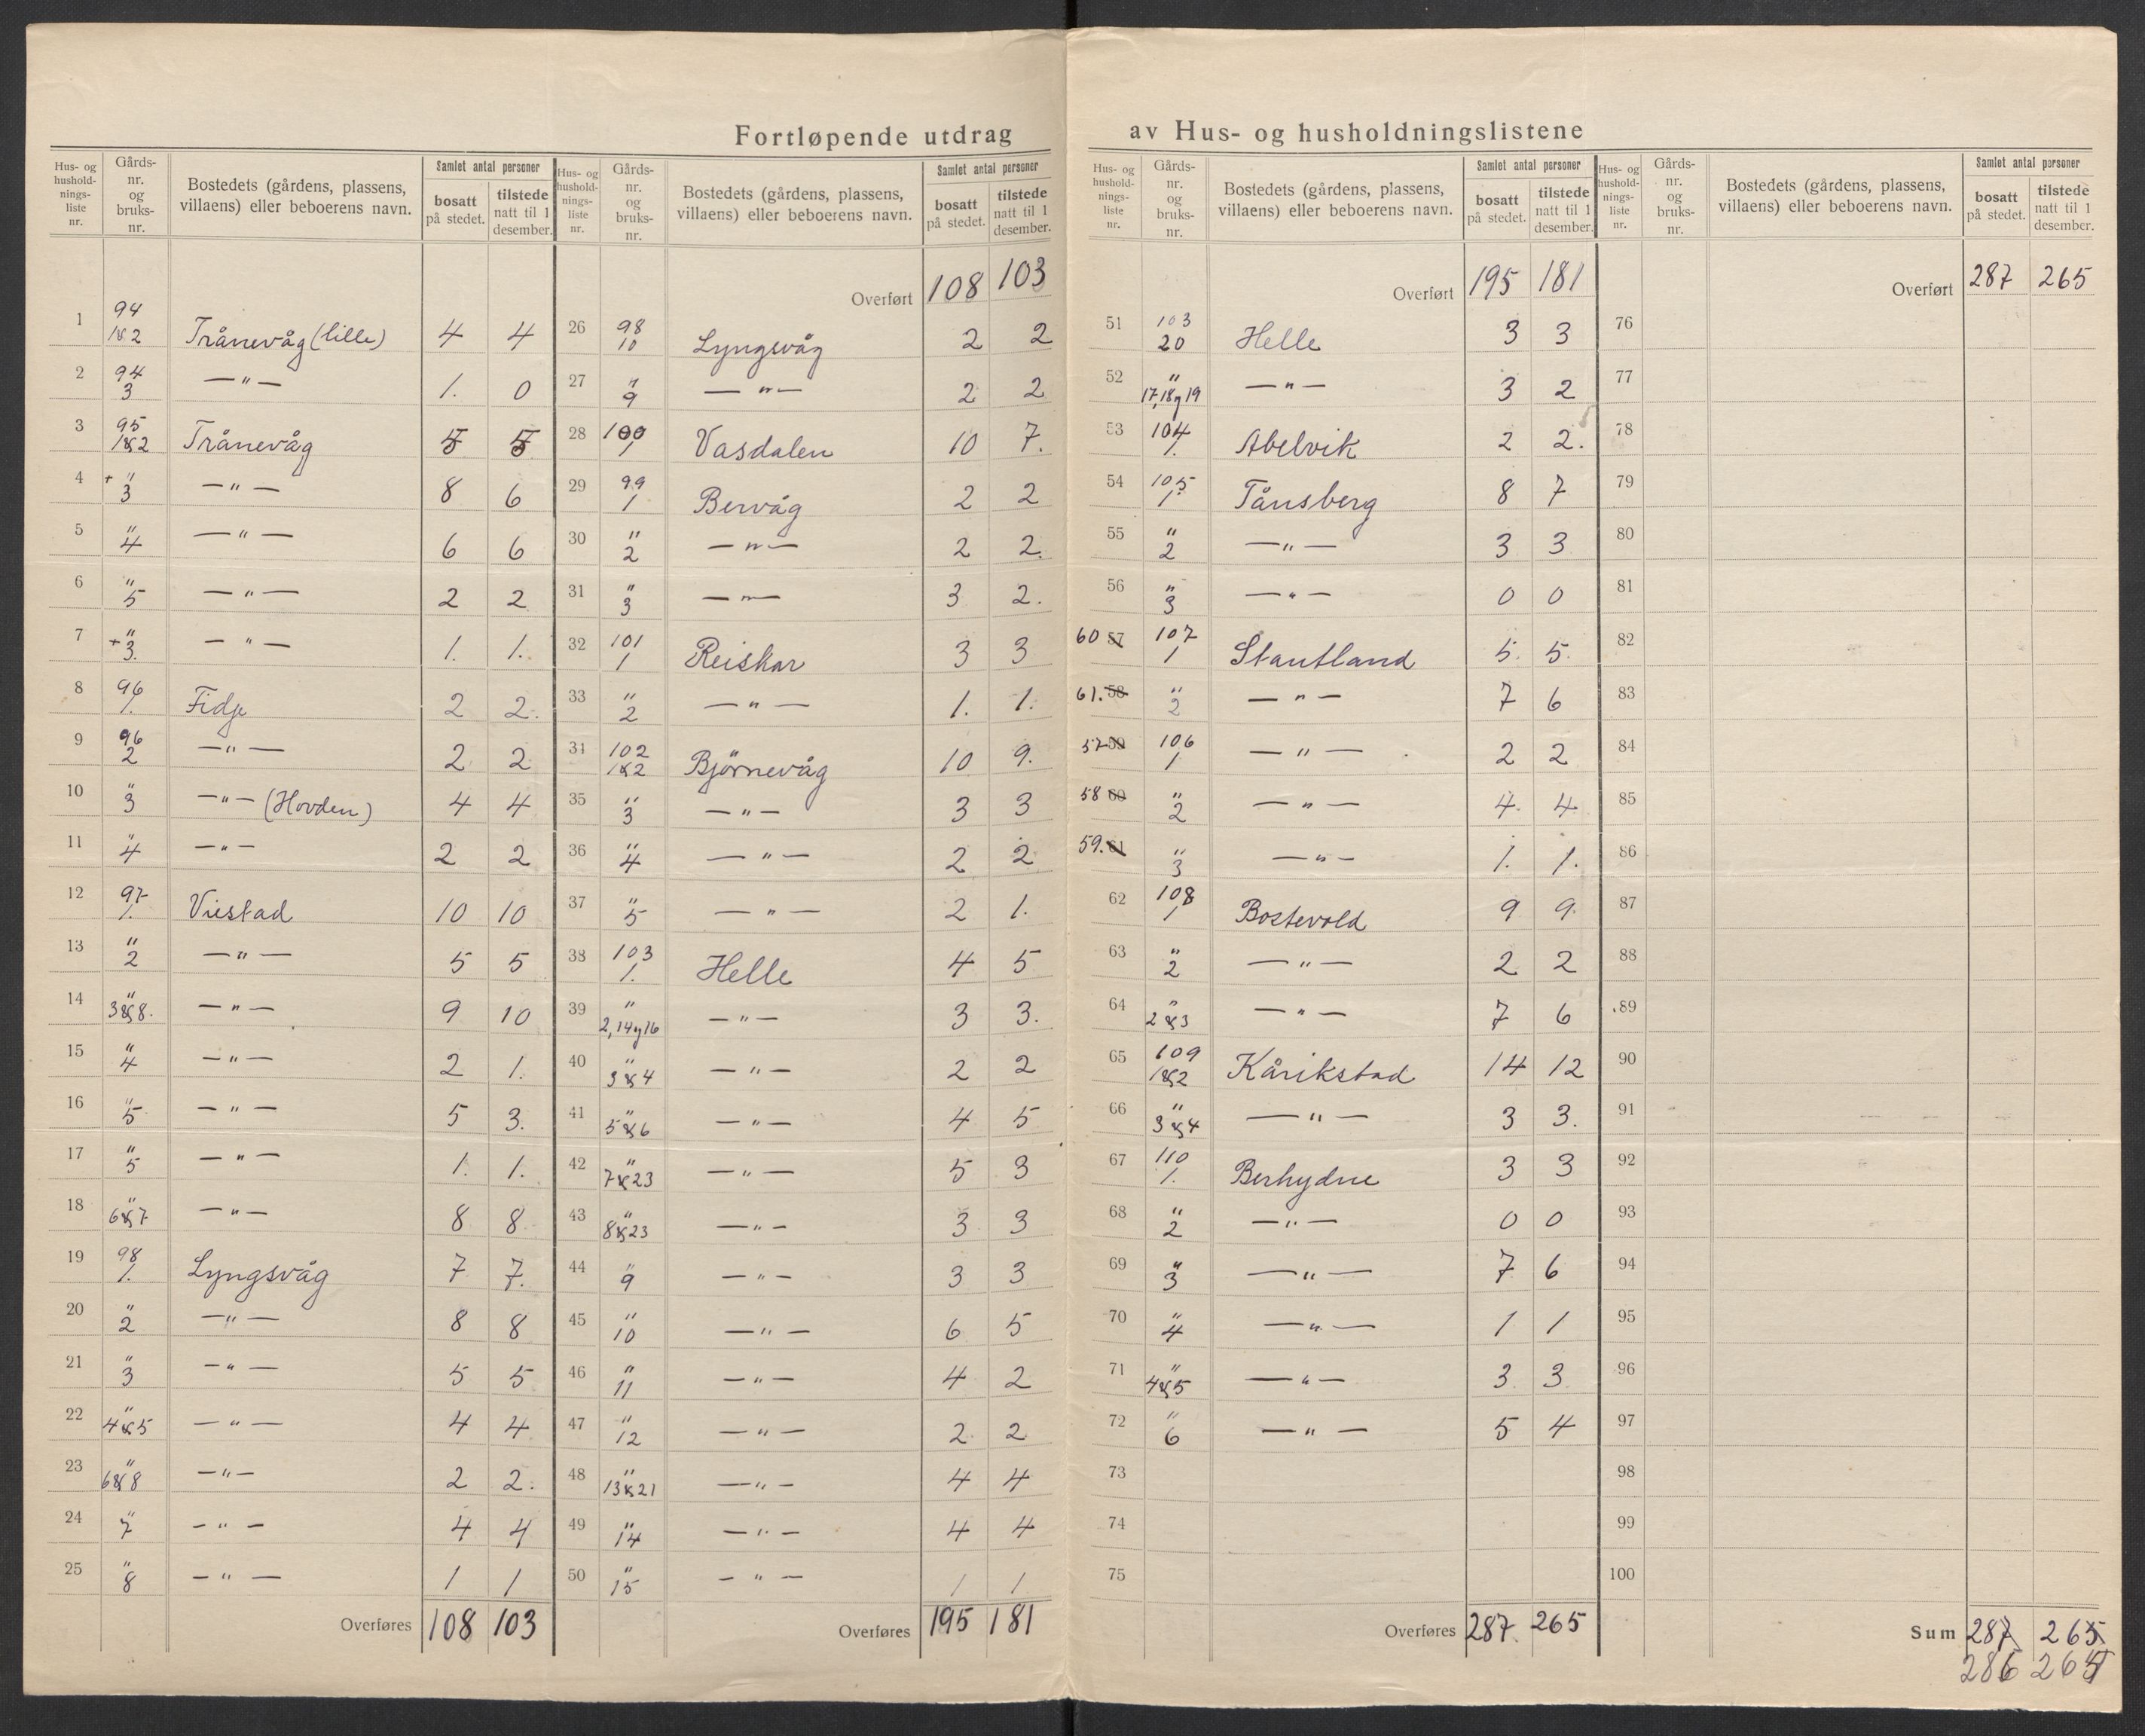 Fortløpende utdrag av Hus- og husholdningslistene
Hus- og husholdnings-liste nr. | Gårds-nr. og bruks-nr. | Bostedets (gårdens, plassens, villaens) eller beboerens navn. | Samlet antal personer bosatt på stedet. | tilstede natt til 1 desember.
1 94 1&2 Trånevåg (lille) 4 4
2 94 3 —"— 1. 0
3 95 1&2 Trånevåg 5 5
4 + " 3 —"— 8 6
5 " 4 —"— 6 6
6 " 5 —"— 2 2
7 + " 3. —"— 1. 1.
8 96 1. Fidje 2 2.
9 96 2 —"— 2 2
10 " 3 —"— (Hovden) 4 4
11 " 4 —"— 2 2
12 97 1. Viestad 10 10
13 " 2 —"— 5 5
14 " 3&8. —"— 9 10
15 " 4 —"— 2 1.
16 " 5 —"— 5 3.
17 " 5 —"— 1. 1.
18 " 6&7 —"— 8 8
19 98 1. Lyngsvåg 7 7.
20 " 2 —"— 8 8
21 " 3 —"— 5 5
22 " 4&5 —"— 4 4
23 " 6&8 —"— 2 2.
24 " 7 —"— 4 4
25 " 8 —"— 1 1
Overføres 108 103
Hus- og husholdnings-liste nr. | Gårds-nr. og bruks-nr. | Bostedets (gårdens, plassens, villaens) eller beboerens navn. | Samlet antal personer bosatt på stedet. | tilstede natt til 1 desember.
Overført 108 103
26 98 10 Lyngsvåg 2 2
27 " 9 —"— 2 2
28 100 1 Vasdalen 10 7.
29 99 1 Bervåg 2 2
30 " 2 —"— 2 2.
31 " 3 —"— 3 2.
32 101 1 Reiskar 3 3
33 " 2 —"— 1. 1.
34 102 1&2 Björnevåg 10 9.
35 " 3 —"— 3 3
36 " 4 —"— 2 2
37 " 5 —"— 2 1.
38 103 1. Helle 4 5
39 " 2,14 og 16 —"— 3 3.
40 " 3&4 —"— 2 2
41 " 5&6 —"— 4 5
42 " 7&23 —"— 5 3
43 " 8&23 —"— 3 3
44 " 9 —"— 3 3
45 " 10 —"— 6 5
46 " 11 —"— 4 2
47 " 12 —"— 2 2
48 " 13&21 —"— 4 4
49 " 14 —"— 4 4
50 " 15 —"— 1 1
Overføres 195 181
Hus- og husholdnings-liste nr. | Gårds-nr. og bruks-nr. | Bostedets (gårdens, plassens, villaens) eller beboerens navn. | Samlet antal personer bosatt på stedet. | tilstede natt til 1 desember.
Overført 195 181
51 103 20 Helle 3 3
52 " 17,18 og 19 —"— 3 2
53 104 1. Abelvik 2 2.
54 105 1 Tånsberg 8 7
55 " 2 —"— 3 3
56 " 3 —"— 0 0
60 57 107 1 Stautland 5. 5.
61. 58 " 2 —"— 7 6
57 59 106 1 —"— 2 2
58 60 " 2 —"— 4. 4.
59. 61 " 3 —"— 1. 1.
62 108 1 Bostevold 9 9.
63 " 2 —"— 2 2
64 " 2&3 —"— 7 6
65 109 1&2 Kårikstad 14 12
66 " 3&4 —"— 3 3.
67 110 1. Berhydne 3 3
68 " 2 —"— 0 0
69 " 3 —"— 7 6
70 " 4 —"— 1 1
71 " 4&5 —"— 3 3
72 " 6 —"— 5 4
73
74
75
Overføres 287 265
Hus- og husholdnings-liste nr. | Gårds-nr. og bruks-nr. | Bostedets (gårdens, plassens, villaens) eller beboerens navn. | Samlet antal personer bosatt på stedet. | tilstede natt til 1 desember.
Overført 287 265
76
77
78
79
80
81
82
83
84
85
86
87
88
89
90
91
92
93
94
95
96
97
98
99
100
Sum 287 265
286 264